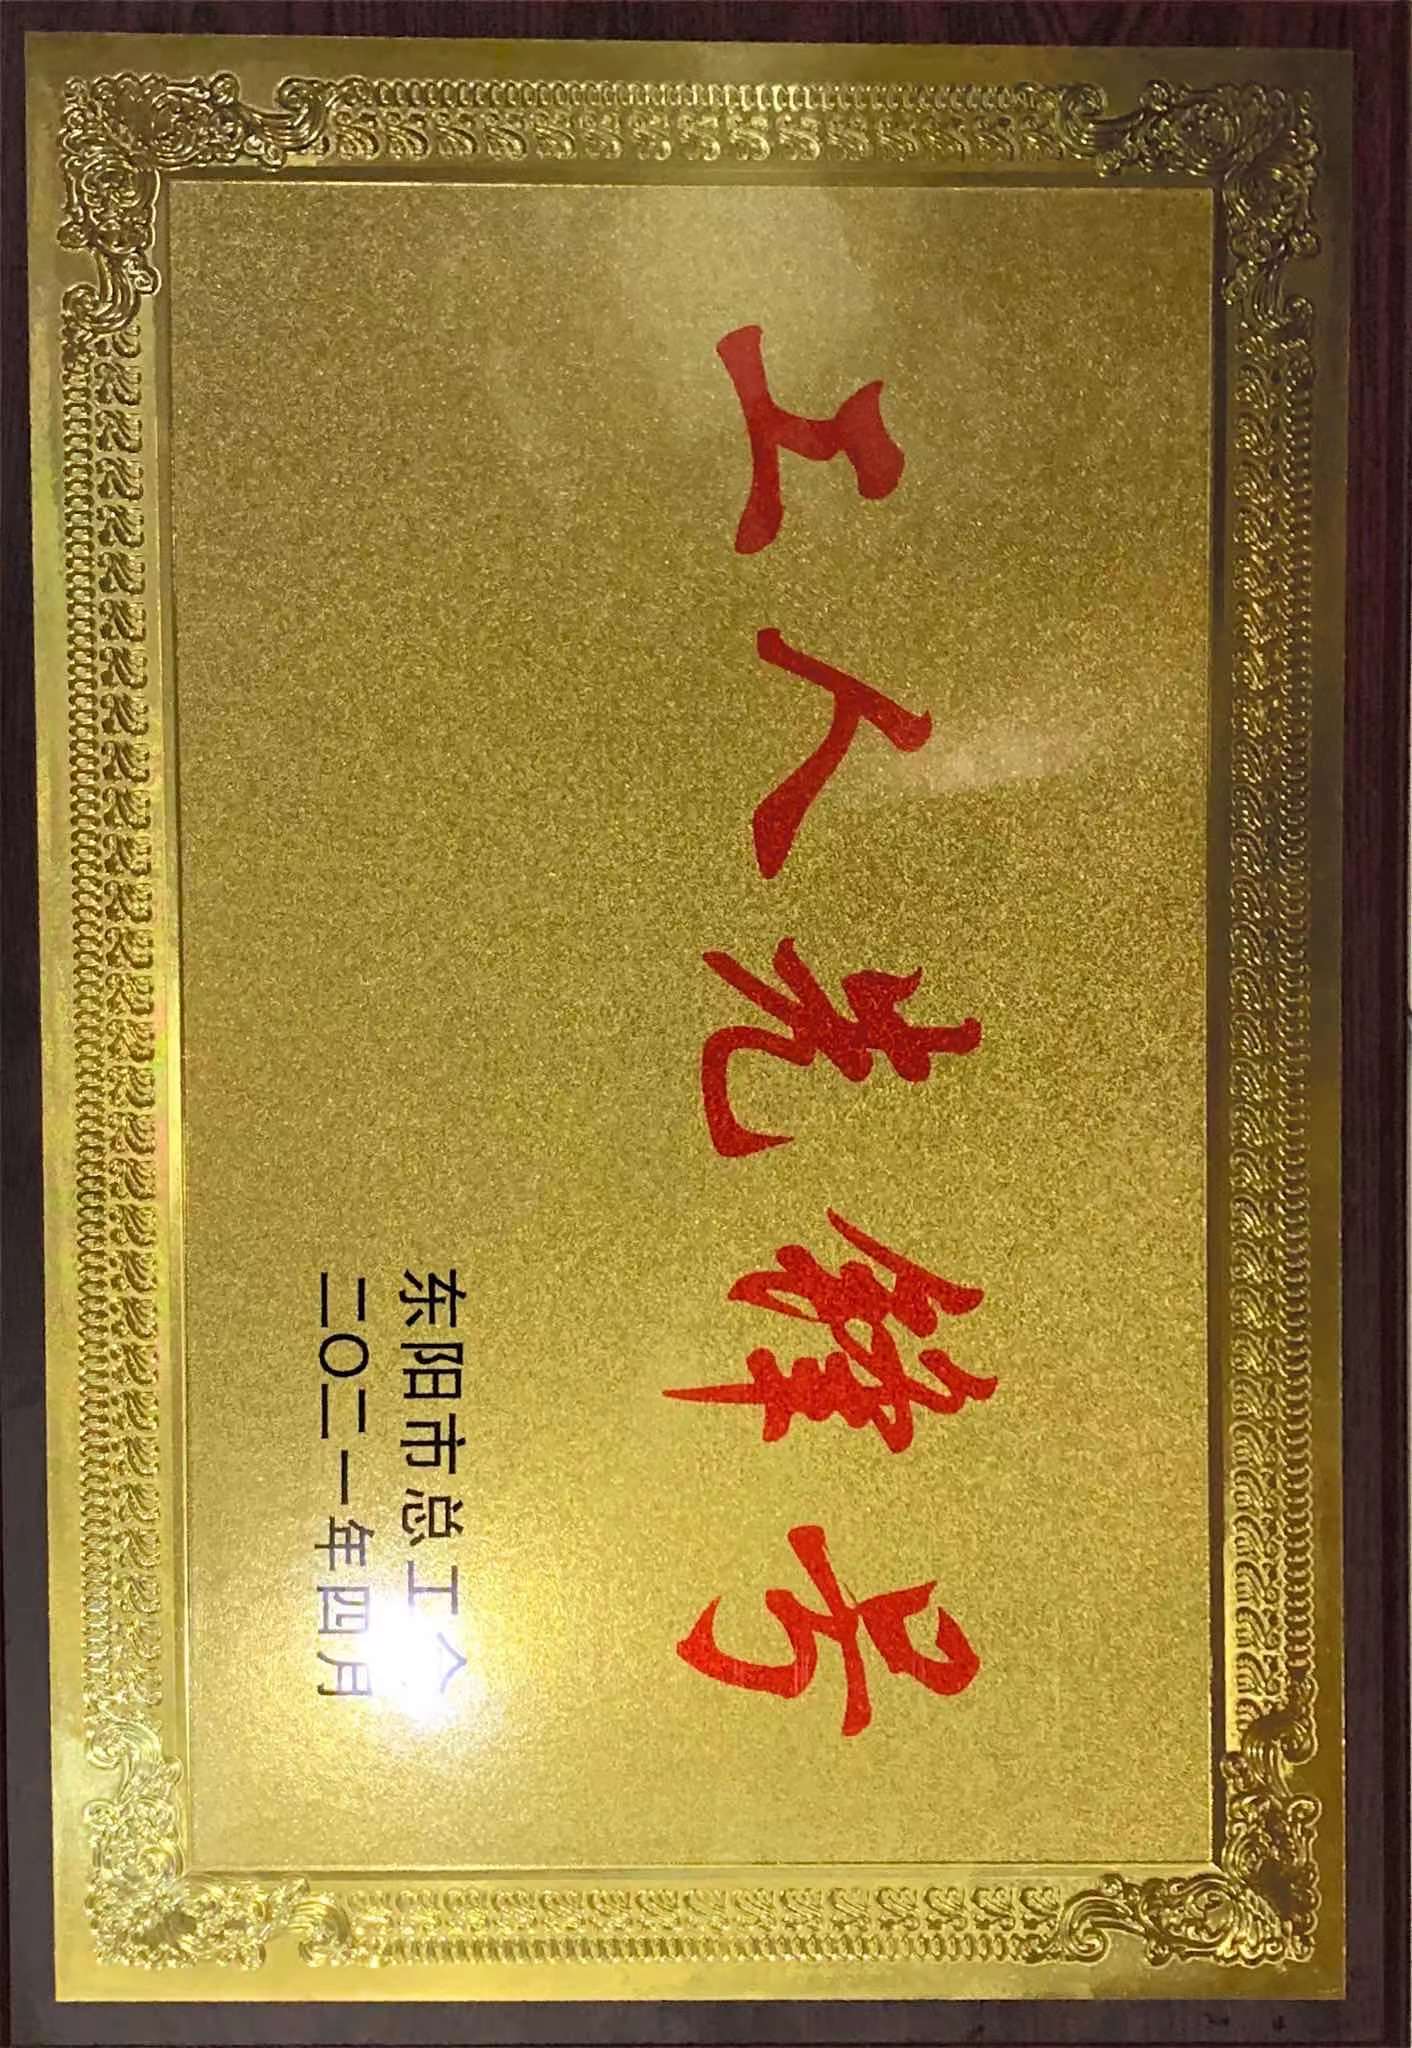 工人先鋒号
东阳市总工会
二〇二一年四月